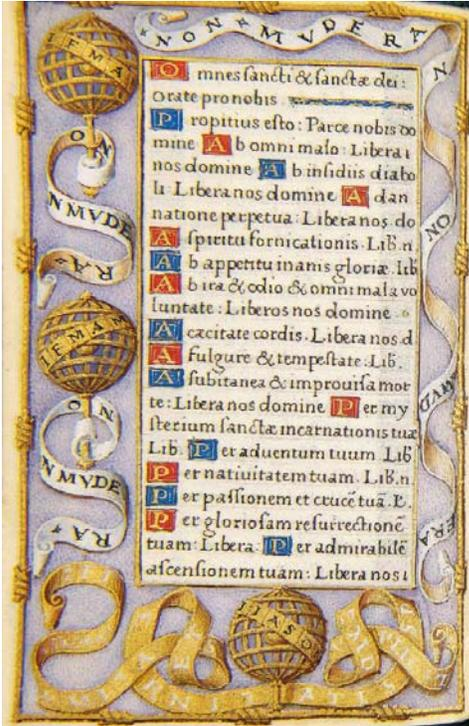 NON MVDERA
Omnes sancti & sanctæ dei:
Orate pro nobis.
Propitius esto: Parce nobis do
mine Ab omni malo: Libera
nos domine Ab insidiis diabo
li: Libera nos domine A dan
natione perpetua: Libera nos do
A spiritu fornicationis. Lib. n.
Ab appetitu inanis gloriæ. Lib
Ab ira & odio & omni mala vo
luntate: Liberos nos domine.
A cæcitate cordis. Libera nos d.
A fulgure & tempestate: Lib.
A subitanea & improvisa mor
te: Libera nos domine Per my
sterium sanctæ incarnationis tuæ
Lib. Per aduentum tuum. Lib
Per nativitatem tuam. Lib. n.
Per passionem et crucē tuā. L.
Per gloriosam resurrectionē
tuam: Libera. Per admirabilē
ascensionem tuam: Libera nos
IEMA
ON
NMVDE
RA
IEMAN
ON
NMVDE
RA
N
ON
MVD
ERA